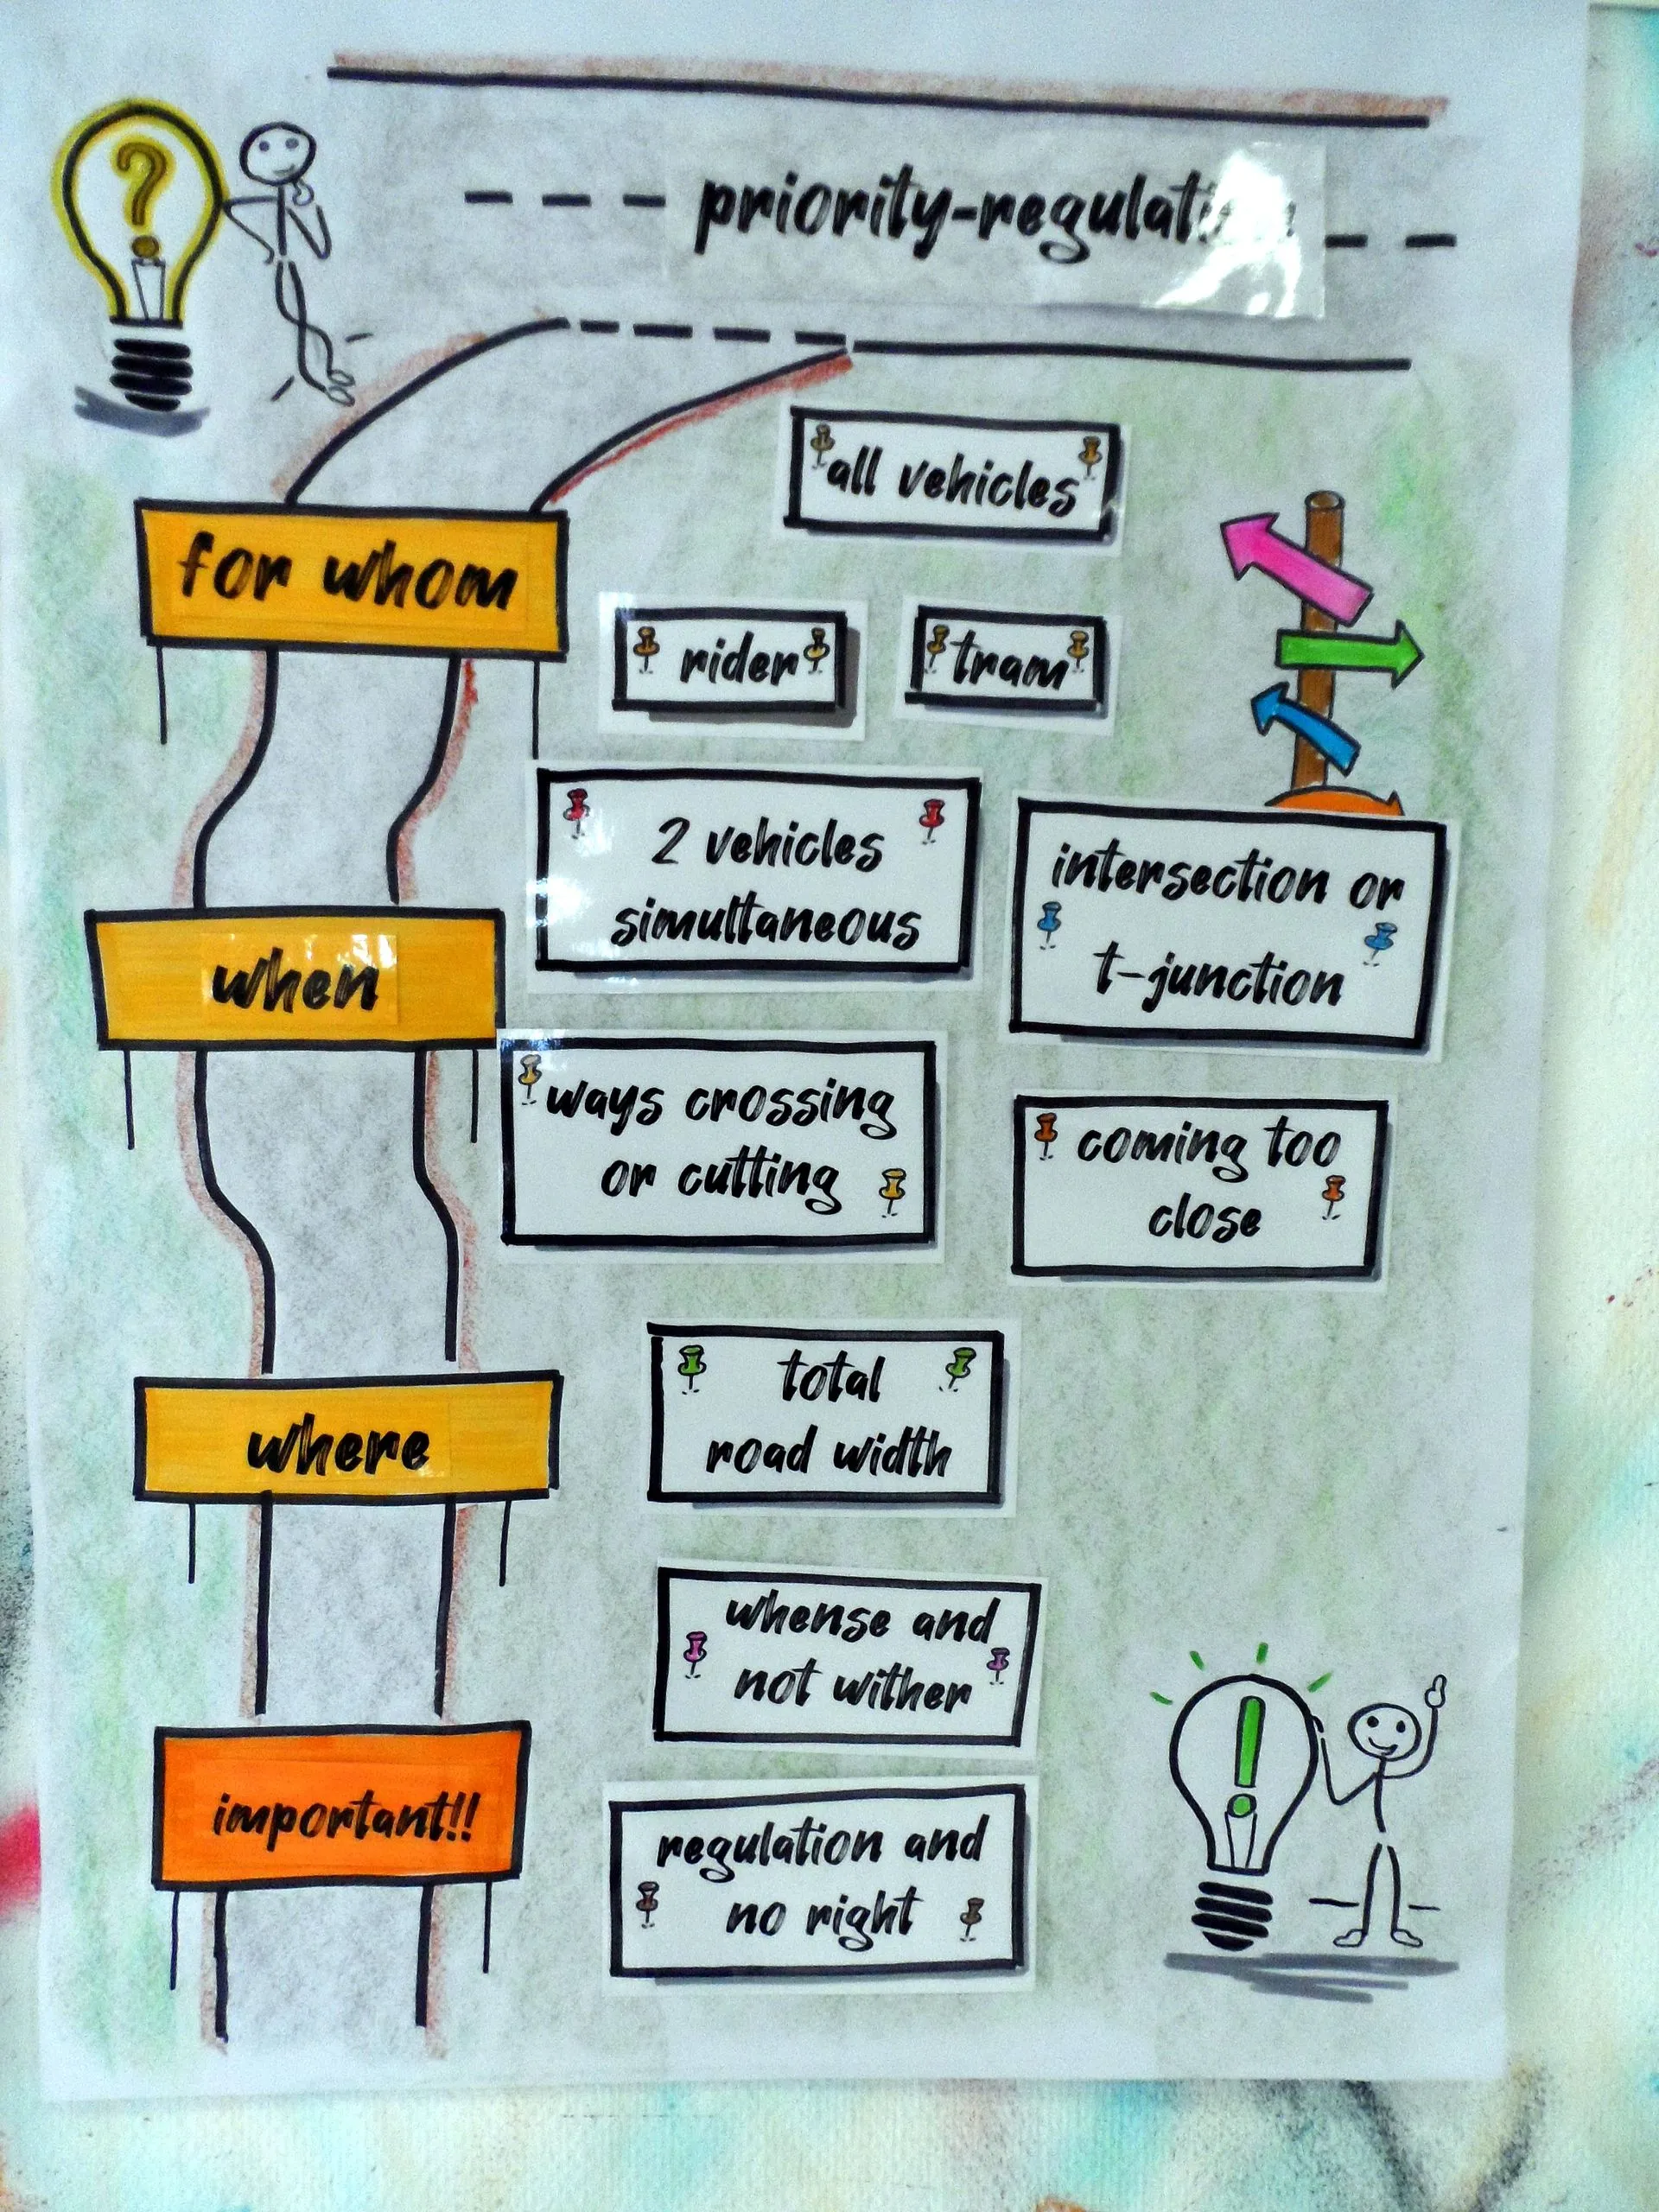 ?
priority-regulation
for whom
all vehicles
rider
tram
when
2 vehicles
simultaneous
intersection or
t-junction
ways crossing
or cutting
coming too
close
where
total
road width
important!!
whense and
not wither
regulation and
no right
!